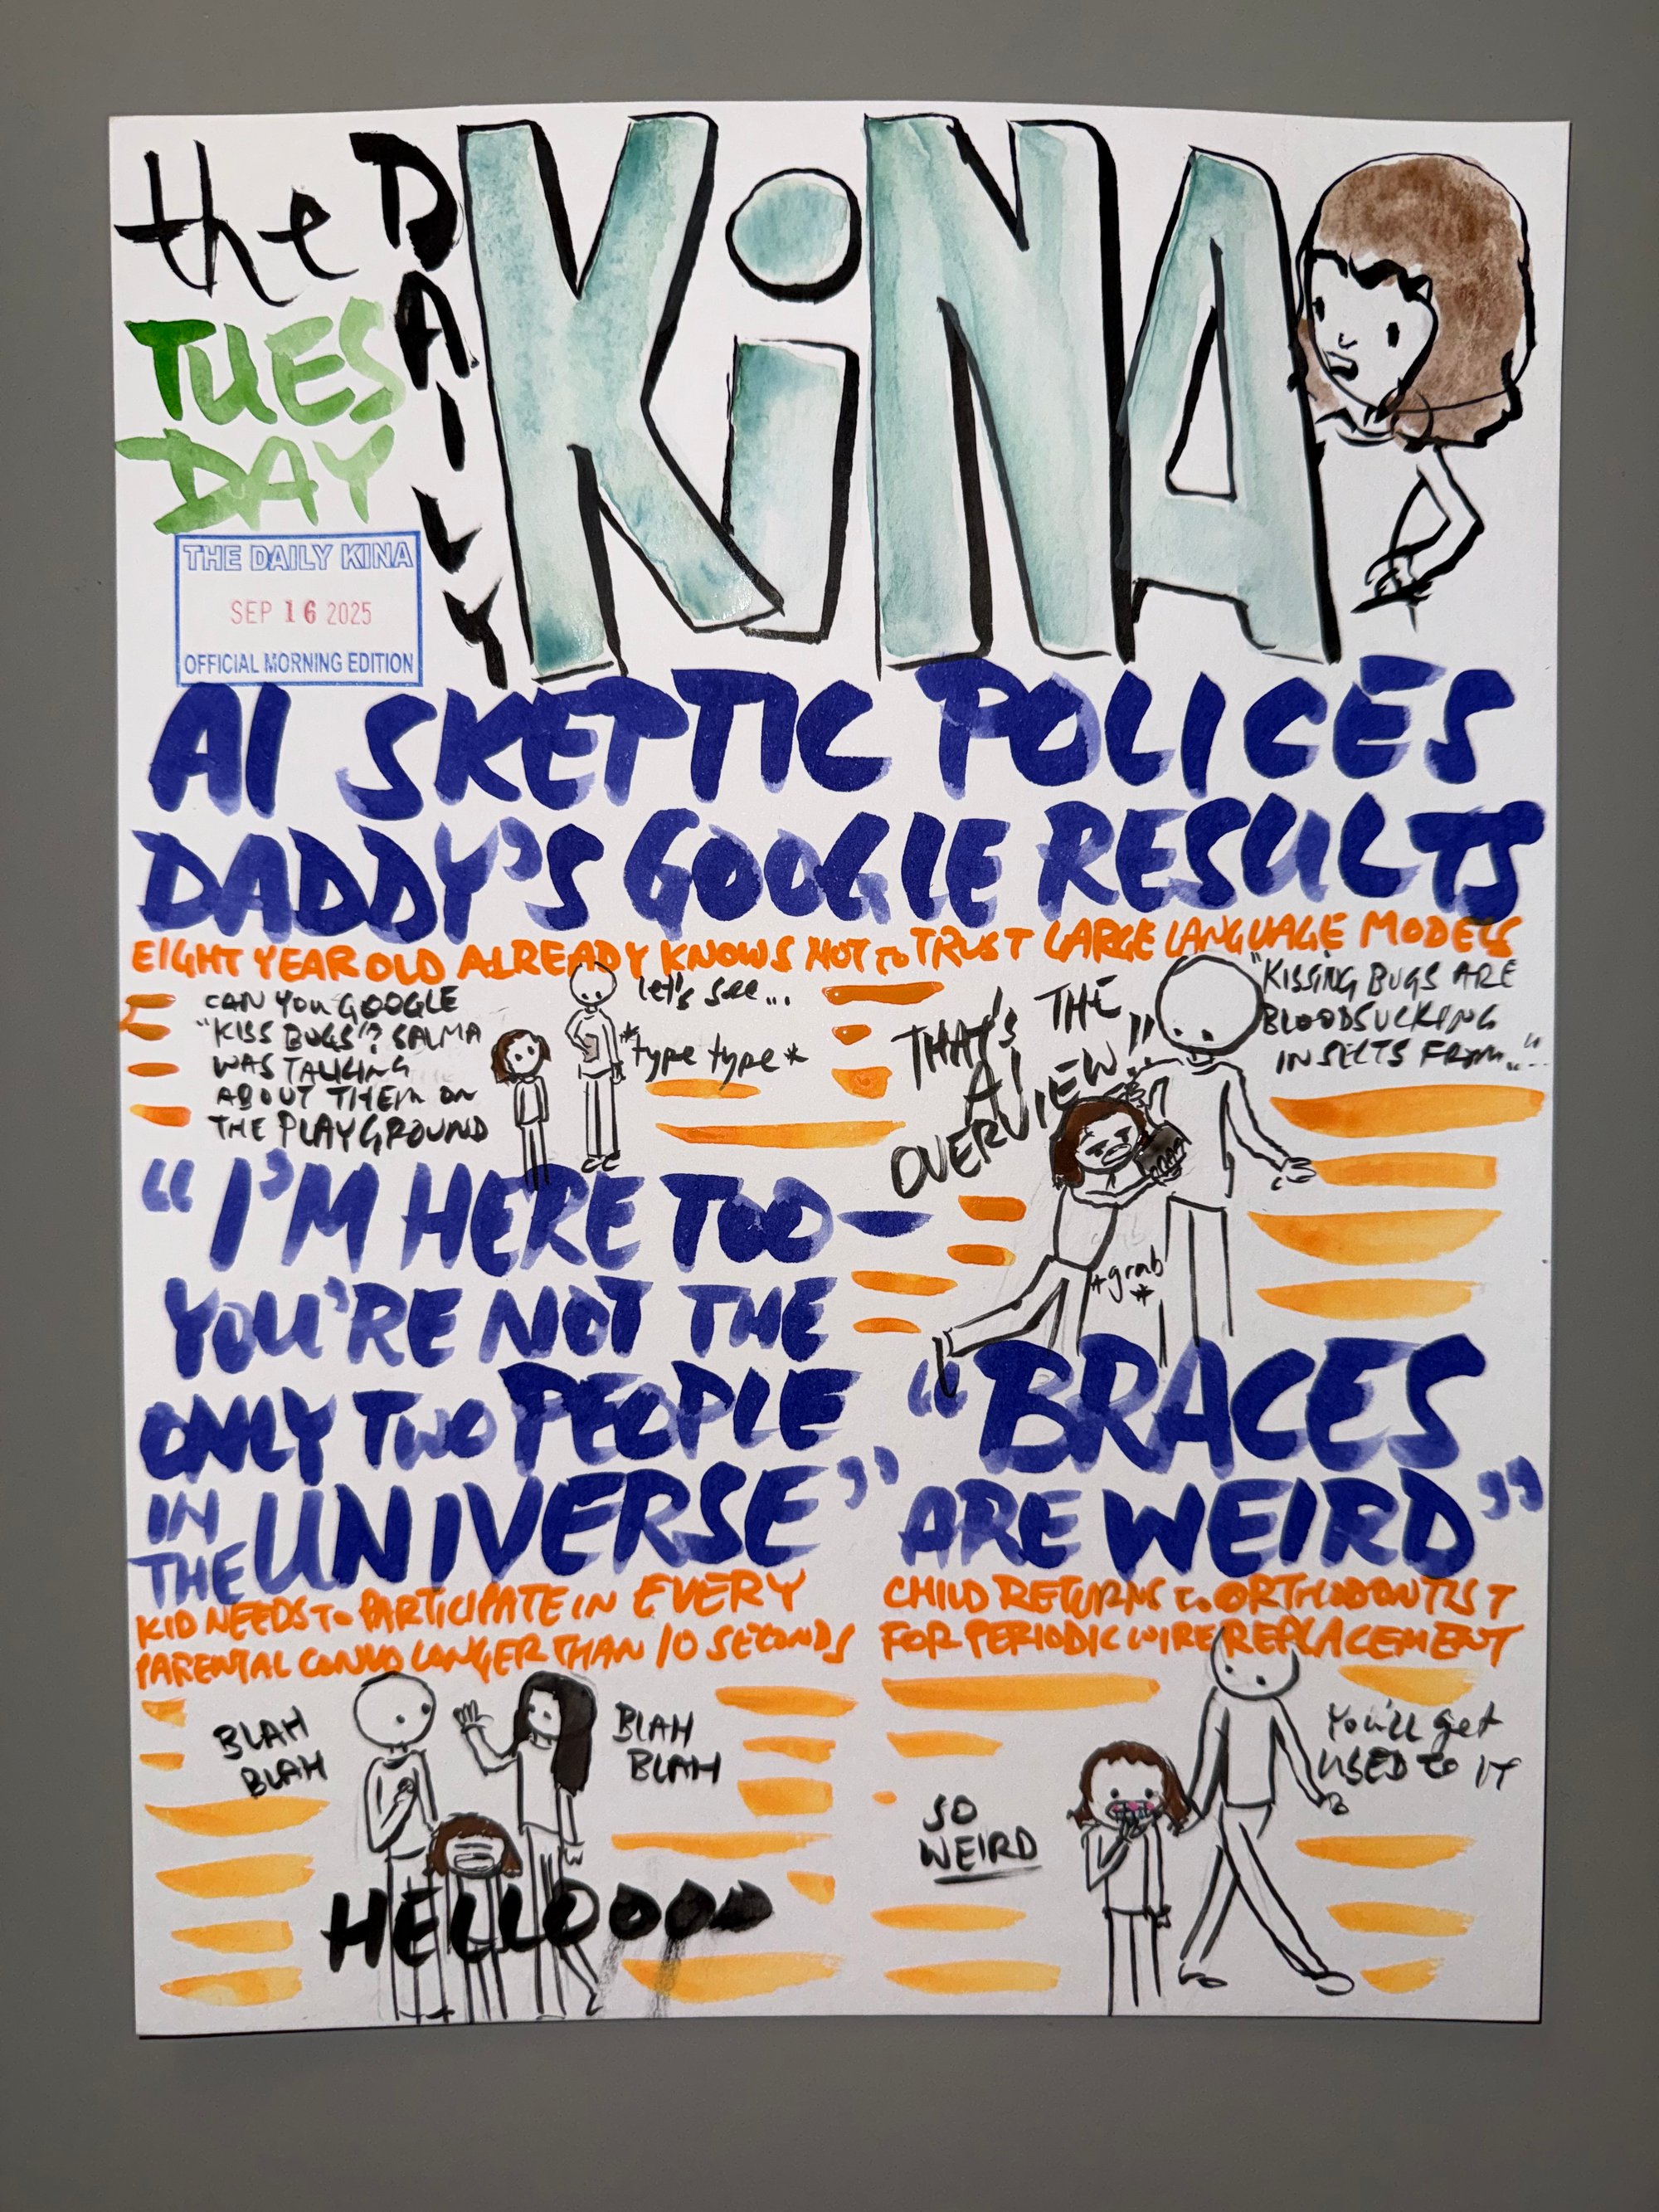 the DAILY KiNA
TUES
DAY
THE DAILY KINA
SEP 16 2025
OFFICIAL MORNING EDITION
AI SKEPTIC POLICES
DADDY'S GOOGLE RESULTS
EIGHT YEAR OLD ALREADY KNOWS NOT to TRUST LARGE LANGUAGE MODELS
CAN YOU GOOGLE
"KISS BUGS"? SALMA
WAS TALKING
ABOUT THEM ON
THE PLAYGROUND
let's see...
*type type*
"KISSING BUGS ARE
BLOODSUCKING
INSECTS FROM..."
THAT'S THE
AI
OVERVIEW!!
*grab
*
"I'M HERE TOO—
YOU'RE NOT THE
ONLY TWO PEOPLE
IN
THE UNIVERSE"
KID NEEDS to PARTICIPATE IN EVERY
PARENTAL CONVO LONGER THAN 10 SECONDS
BLAH
BLAH
BLAH
BLAH
HELLOOOO
"BRACES
ARE WEIRD"
CHILD RETURNS to ORTHODONTIST
FOR PERIODIC WIRE REPLACEMENT
You'll get
USED to IT
SO
WEIRD